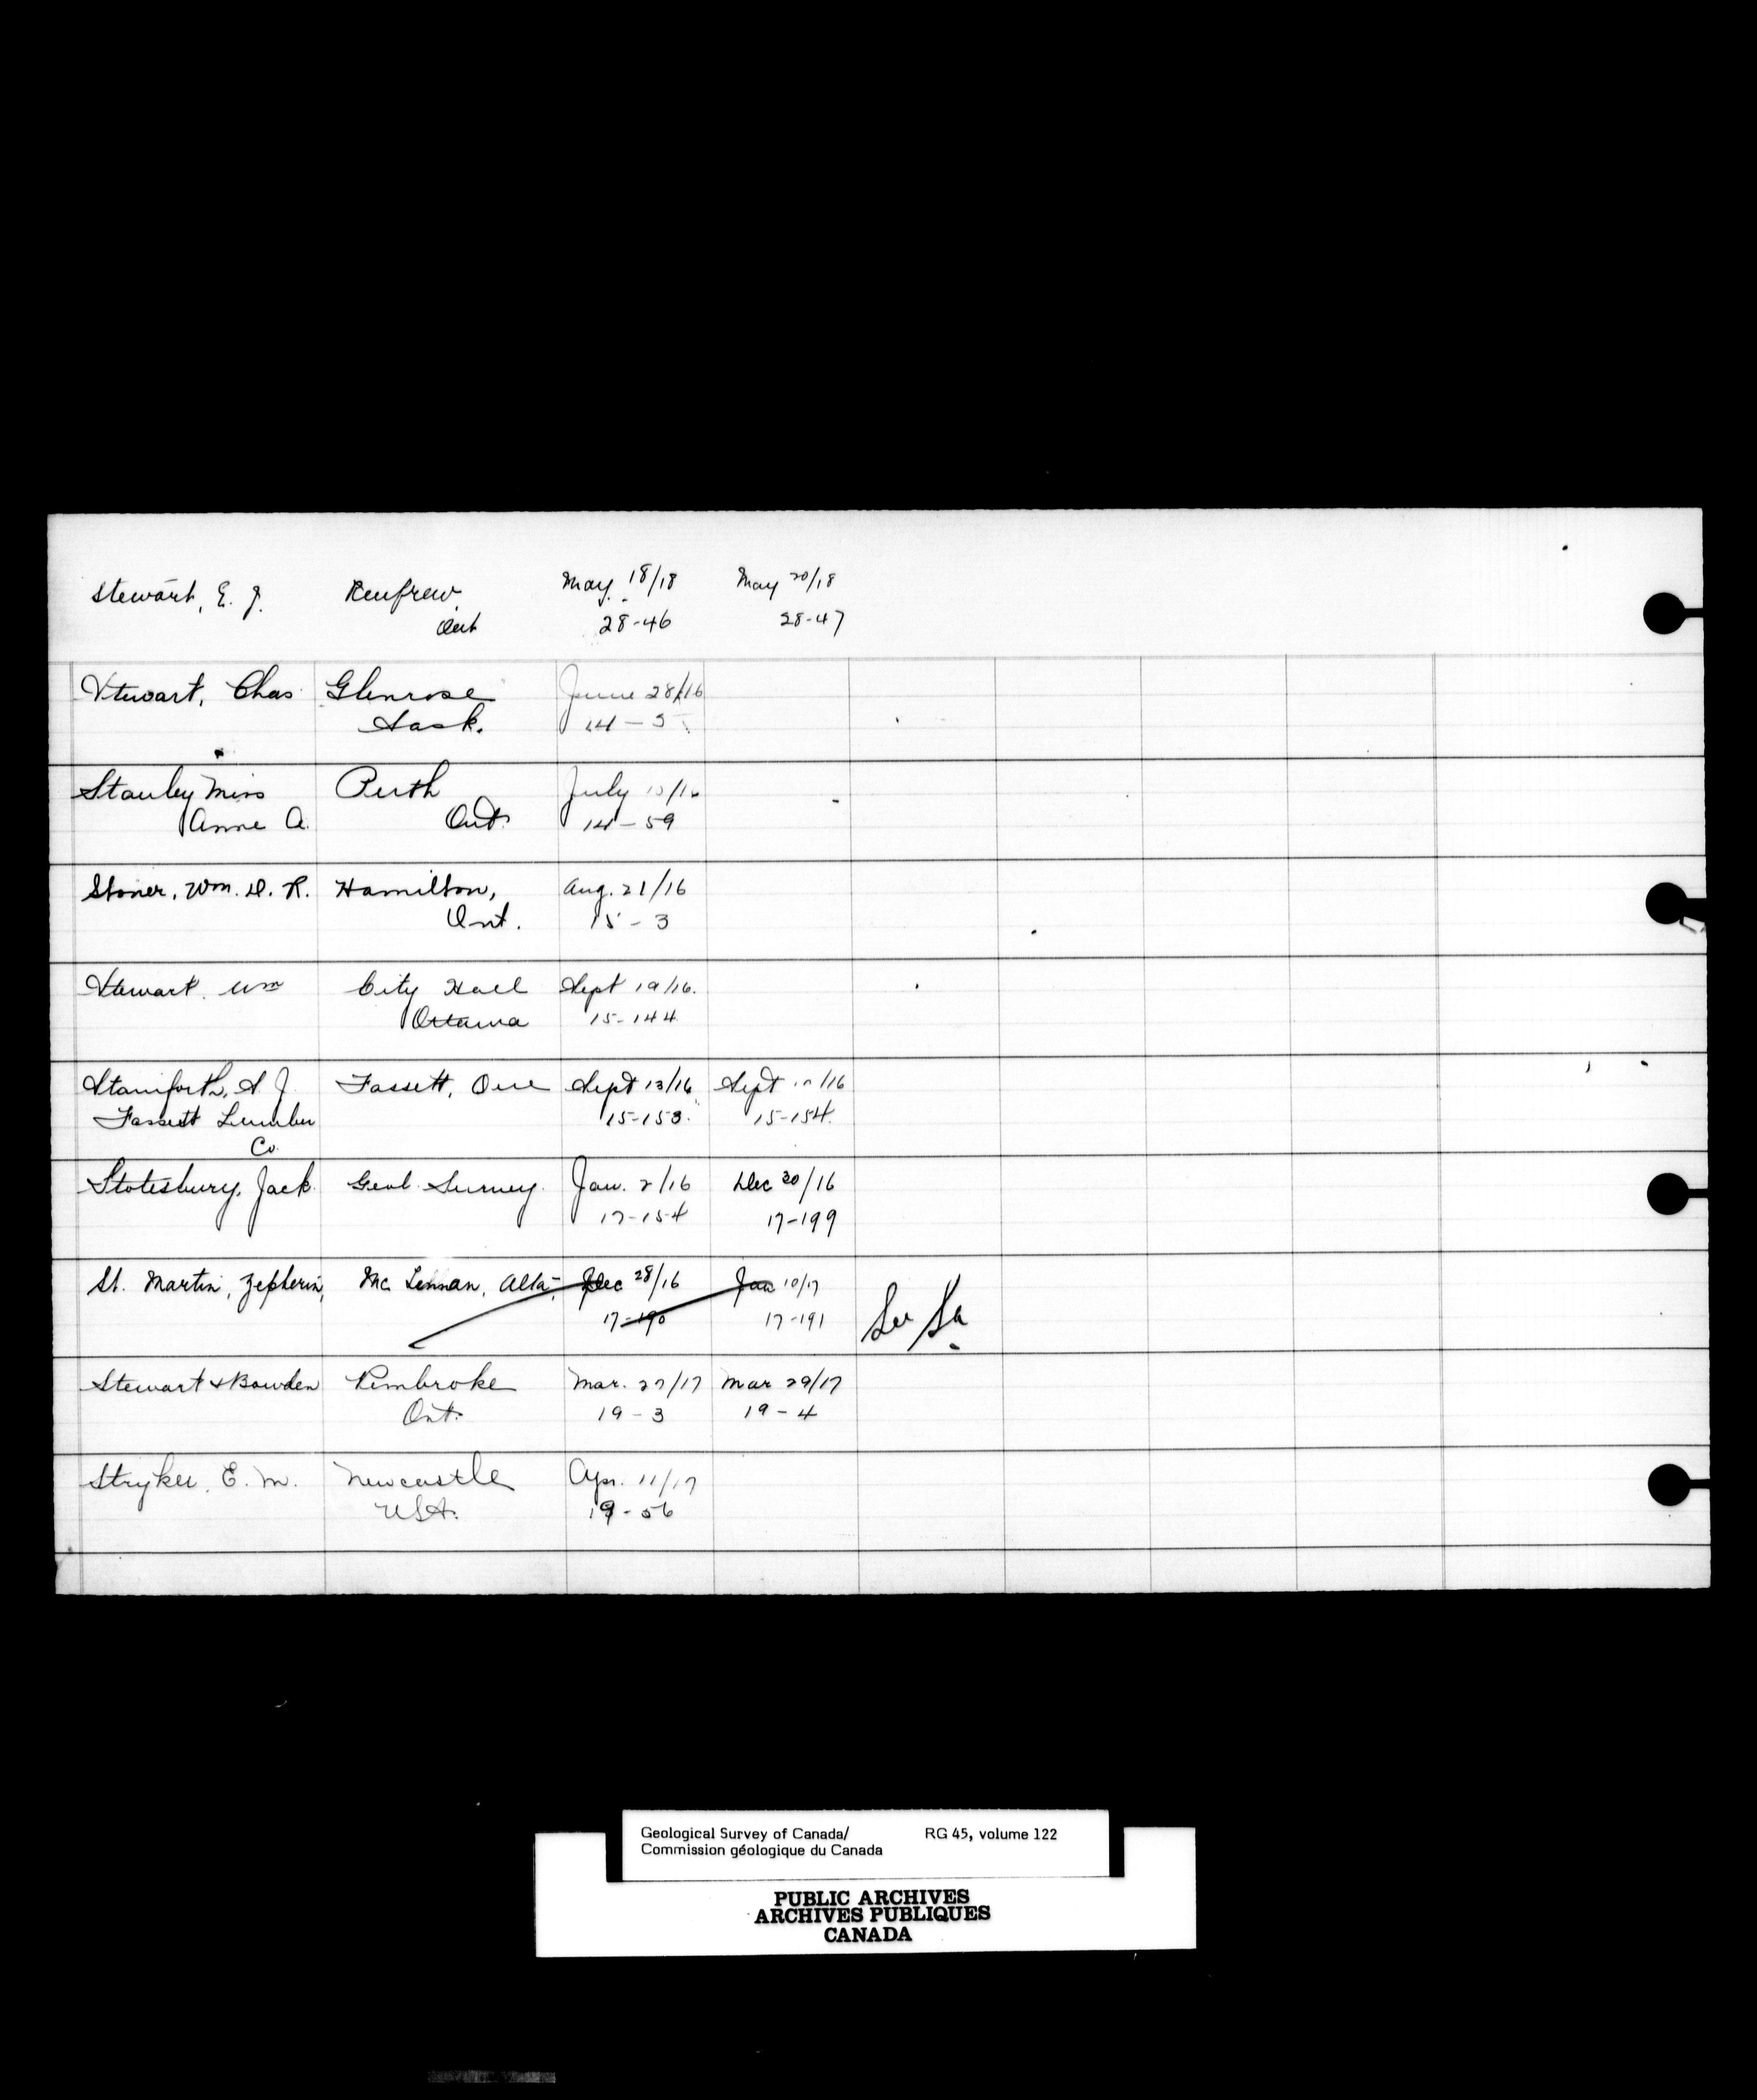 Stewart, E. J. Renfrew May 18/18 May 20/18
Ont 28-46 28-47
Stewart, Chas Glenrose June 28/16
Sask. 14-5
Stanley Miss Perth July /16
Anne A. Ont. 14-59
Stoner, Wm. D. R. Hamilton, Aug. 21/16
Ont. 15-3
Stewart, Wm City Hall Sept 19/16.
Ottawa 15-144
Staniforth, S. J. Fassett, Que Sept 13/16 Sept /16
Fassett Lumber 15-153. 15-154.
Co.
Stotesbury, Jack. Geol. Survey. Jan. 2/16 Dec 30/16
17-154 17-199
St. Martin, Zepherin, Mc Lennan, Alta, Dec 28/16 Jan 10/17
17-190 17-191 See Sa
Stewart & Bowden Pembroke Mar. 27/17 Mar 29/17
Ont. 19-3 19-4
Stryker, E. M. Newcastle Apr. 11/17
USA. 19-56
Geological Survey of Canada/ RG 45, volume 122
Commission géologique du Canada
PUBLIC ARCHIVES
ARCHIVES PUBLIQUES
CANADA